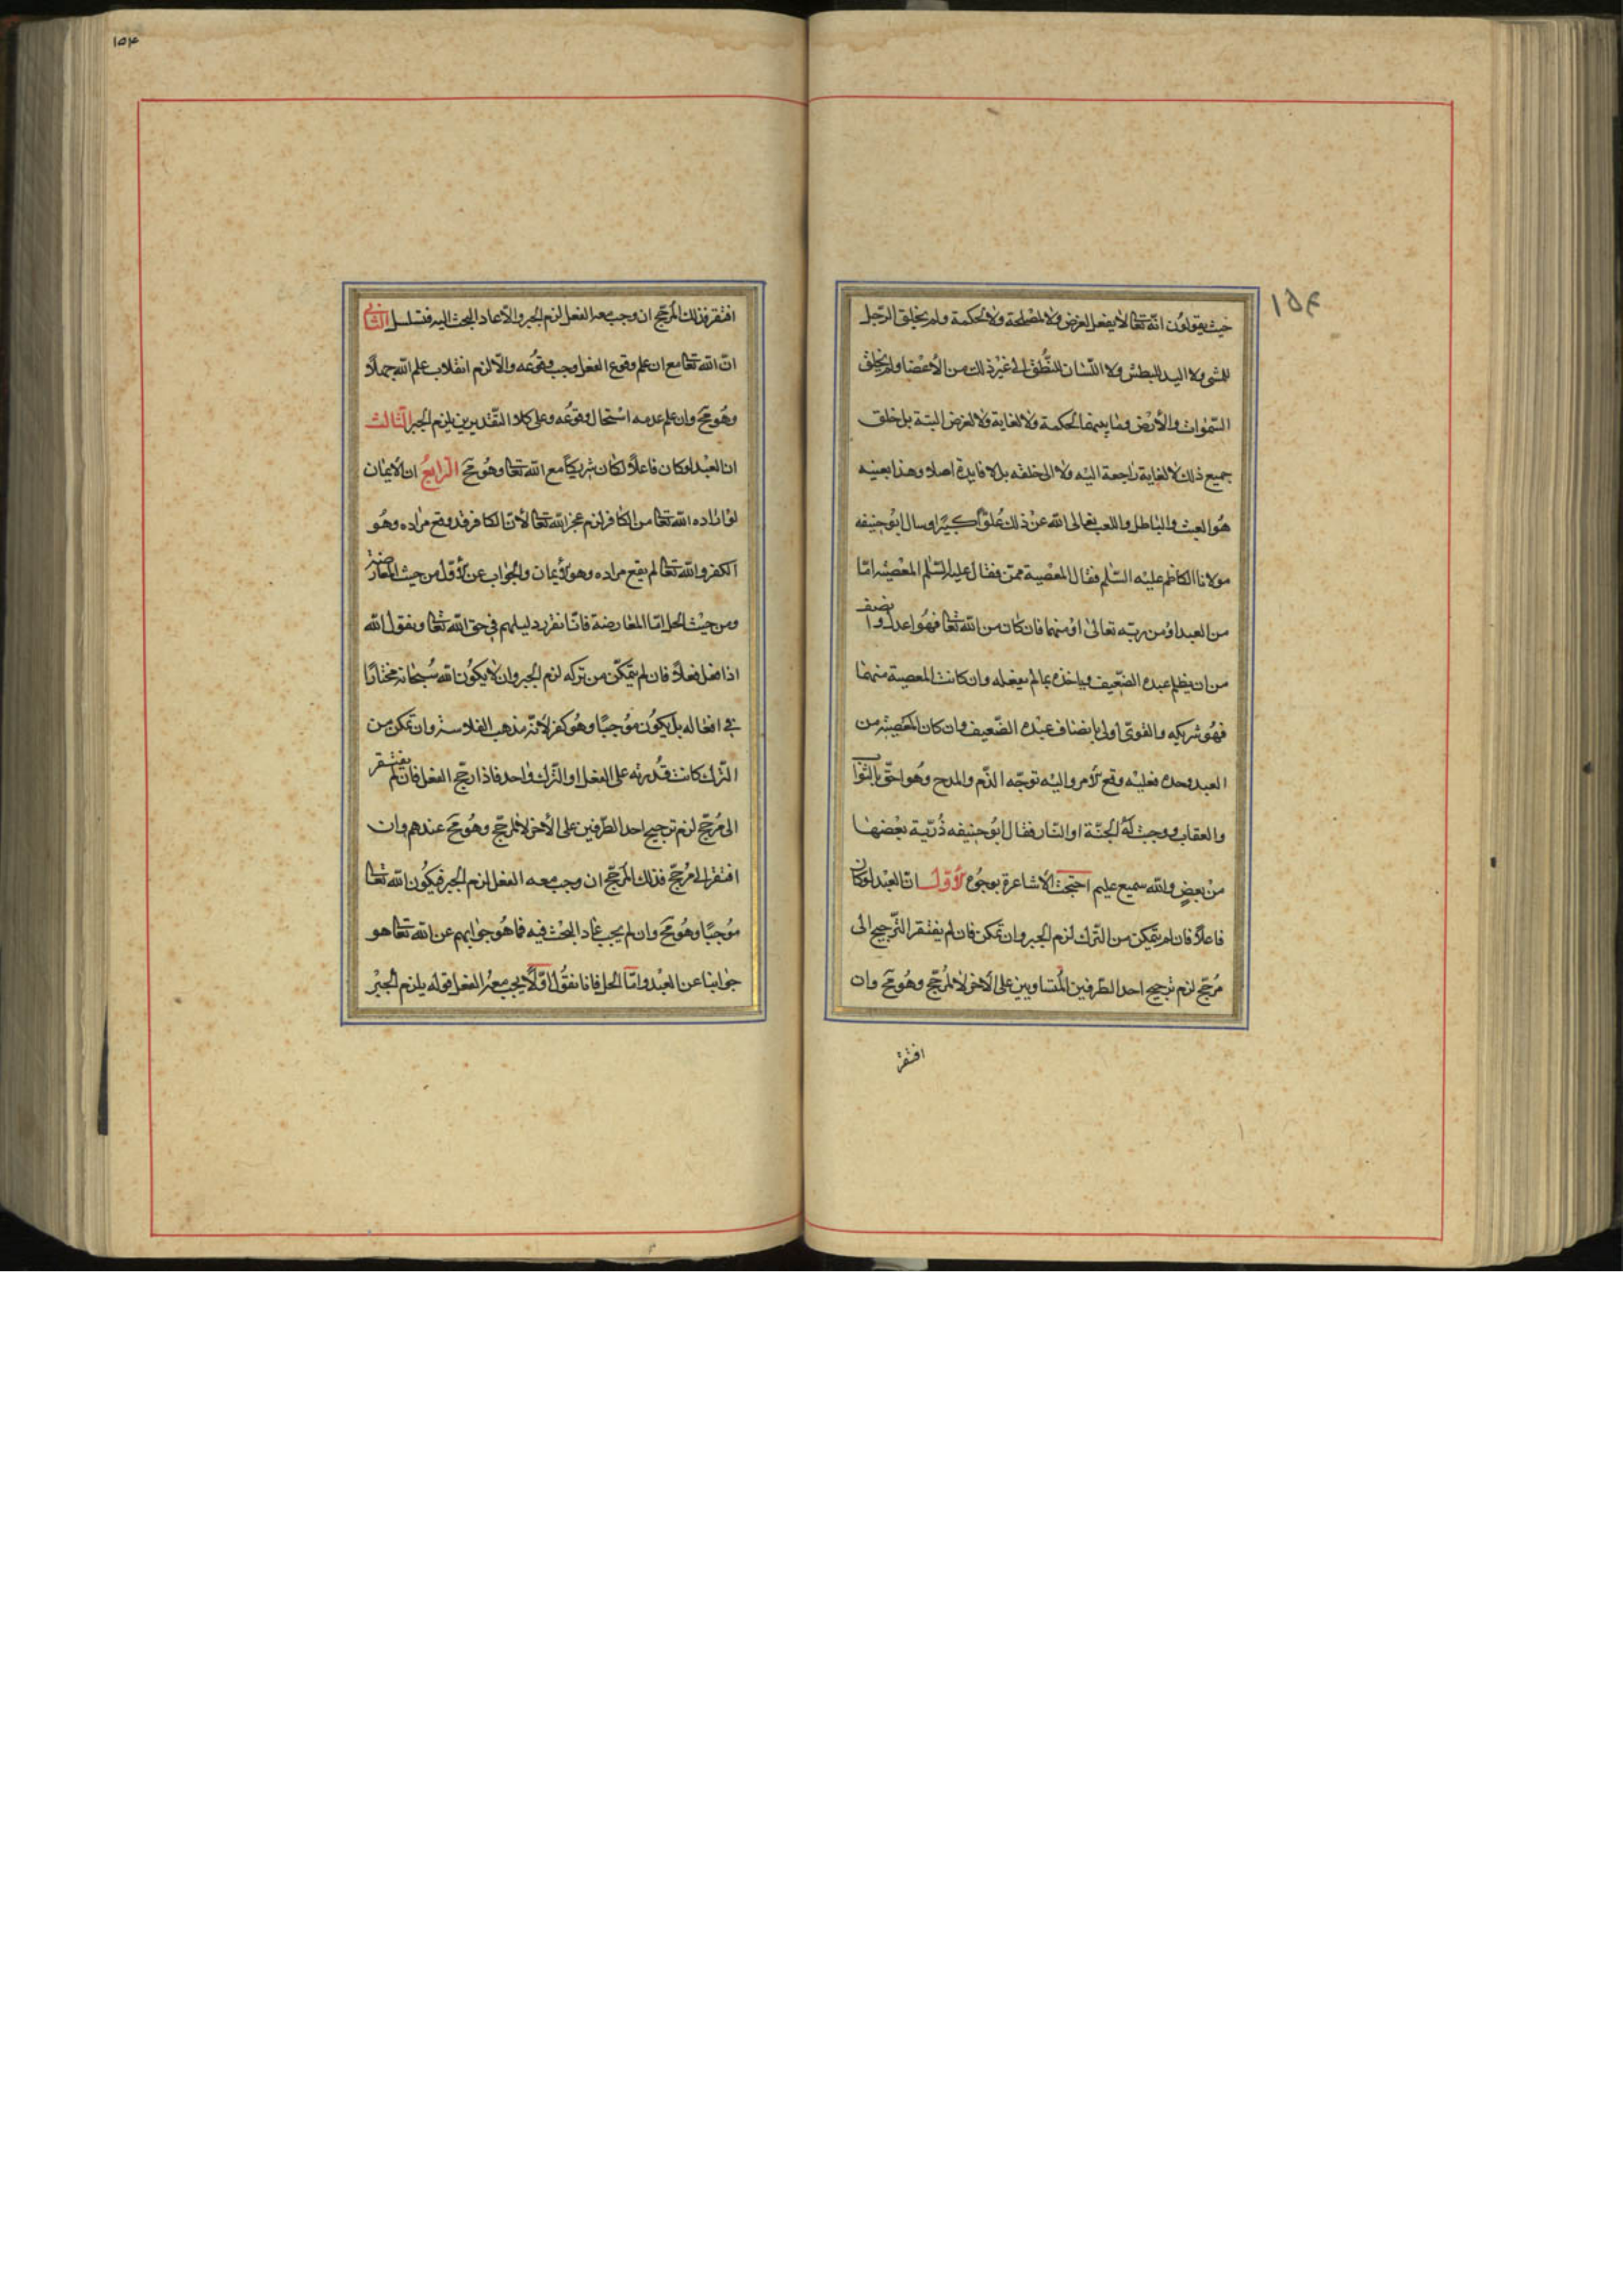 ۱۵۴
حيث يقولون انّه تعا لا يفعل لغرض ولا لمصلحة ولا لحكمة ولم يخلق الرّجل
للمشى ولا اليد للبطش ولا اللّسان للنّطق الى غير ذلك من الأعضا ولم يخلق
السّموات والأرض وما بينهما لحكمة ولا لغاية ولا لغرض البتة بل خلق
جميع ذلك لا لغاية راجعة اليه ولا الى خلقه بل لا فايدة اصلا وهذا بعينه
هو العبث والباطل واللعب تعالى الله عن ذلك علوّا كبيرا وسال ابو حنيفه
مولانا الكاظم عليه السّلم فقال المعصية ممّن فقال عليه السّلم المعصية امّا
من العبد او من ربّه تعالى او منهما فان كان من الله تعا فهو اعدل وانصف
من ان يظلم عبده الضّعيف وياخذه بما لم يفعله وان كانت المعصية منهما
فهو شريكه والقوىّ اولى بانصاف عبده الضّعيف وان كان المعصية من
العبد وحده فعليه وقع الامر واليه توجّه الذّم والمدح وهو احقّ بالثواب
والعقاب ووجبت له الجنّة او النّار فقال ابو حنيفه ذُرّية بعضها
من بعضٍ والله سميع عليم احتجّت الاشاعرة بوجوه الأوّل انّ العبد لو كان
فاعلاً فان لم يتمكن من التّرك لزم الجبر وان تمكن فان لم يفتقر التّرجيح الى
مُرجّح لزم ترجيح احد الطّرفين المتساويين على الآخر لا لمُرجّح وهُو مح وان
افتقر
۱۵۴
افتقر فذلك المُرجّح ان وجب معه الفعل لزم الجبر والّا عاد البحث اليه فتسلسل الثّانى
انّ الله تعا مع ان علم وقوع الفعل وجب وقوعه والّا لزم انقلاب علم الله جهلاً
وهُو مح وان علم عدمه استحال وقوعُه وعلى كلا التّقديرين يلزم الجبر الثّالث
ان العبد لو كان فاعلاً لكان شريكاً مع الله تعا وهُو مح الرّابعُ ان الايمان
لو اراده الله تعا من الكافر لزم عجز الله تعا لأنّ الكافر قد وقع مراده وهُو
الكفر والله تعا لم يقع مراده وهو الأيمان والجواب عن الأوّل من حيث المعارضة
ومن حيث الحل امّا المعارضة فانّا نقرر دليلهم فى حق الله تعا ونقول الله
اذا فعل فعلاً فان لم يتمكّن من تركه لزم الجبر وان لا يكون الله سُبحانه مختارًا
فى افعاله بل يكون موُجبًا وهُو كفر لأنّه مذهب الفلاسفه وان تمكن من
التّرك كانت قُدرته على الفعل او التّرك واحد فاذا رجّح الفعل فان لم يفتقر
الى مُرجّح لزم ترجيح احد الطّرفين على الآخر لا لمُرجّح وهُو مح عندهم وان
افتقر الى مُرجّح فذلك المُرجّح ان وجب معه الفعل لزم الجبر فيكون الله تعا
موُجبًا وهُو مح وان لم يجب عاد البحث فيه فما هُو جوابهم عن الله تعا هو
جوابنا عن العبد وامّا الحل فانا نقول اوّلاً يجب معه الفعل قوله يلزم الجبر